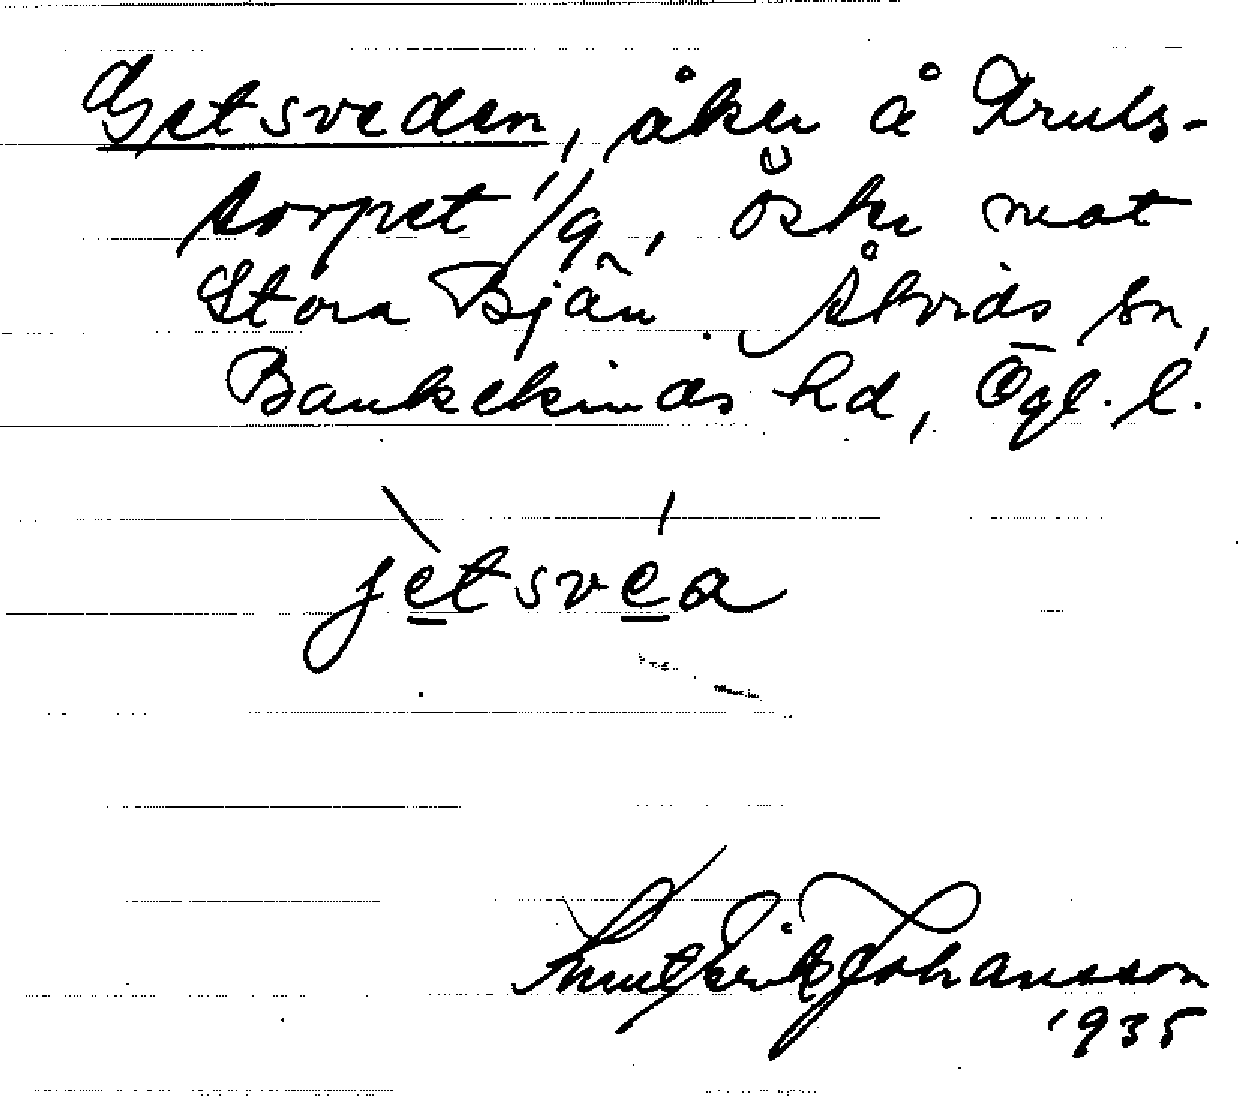 Getsveden, åker å Truls-
torpet 1/9, öster mot
Stora Bjän. Åtvids sn,
Bankekinds hd, Ögl. l.
jètsvéa
Knut Erik Johansson
1935